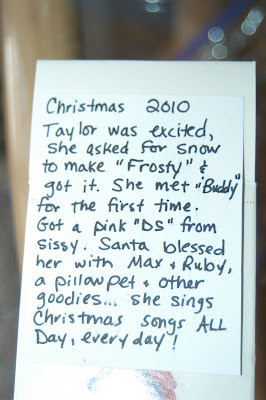 Christmas 2010
Taylor was excited,
she asked for snow
to make "Frosty" &
got it. She met "Buddy"
for the first time.
Got a pink "DS" from
sissy. Santa blessed
her with Max & Ruby,
a pillowpet & other
goodies... she sings
Christmas songs ALL
Day, every day!